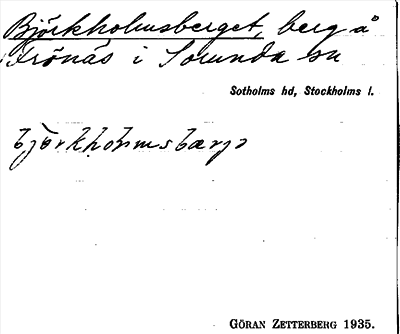 Björkholmsberget, berg å
Frönäs i Sorunda sn
Sotholms hd, Stockholms l.
GÖRAN ZETTERBERG 1935.